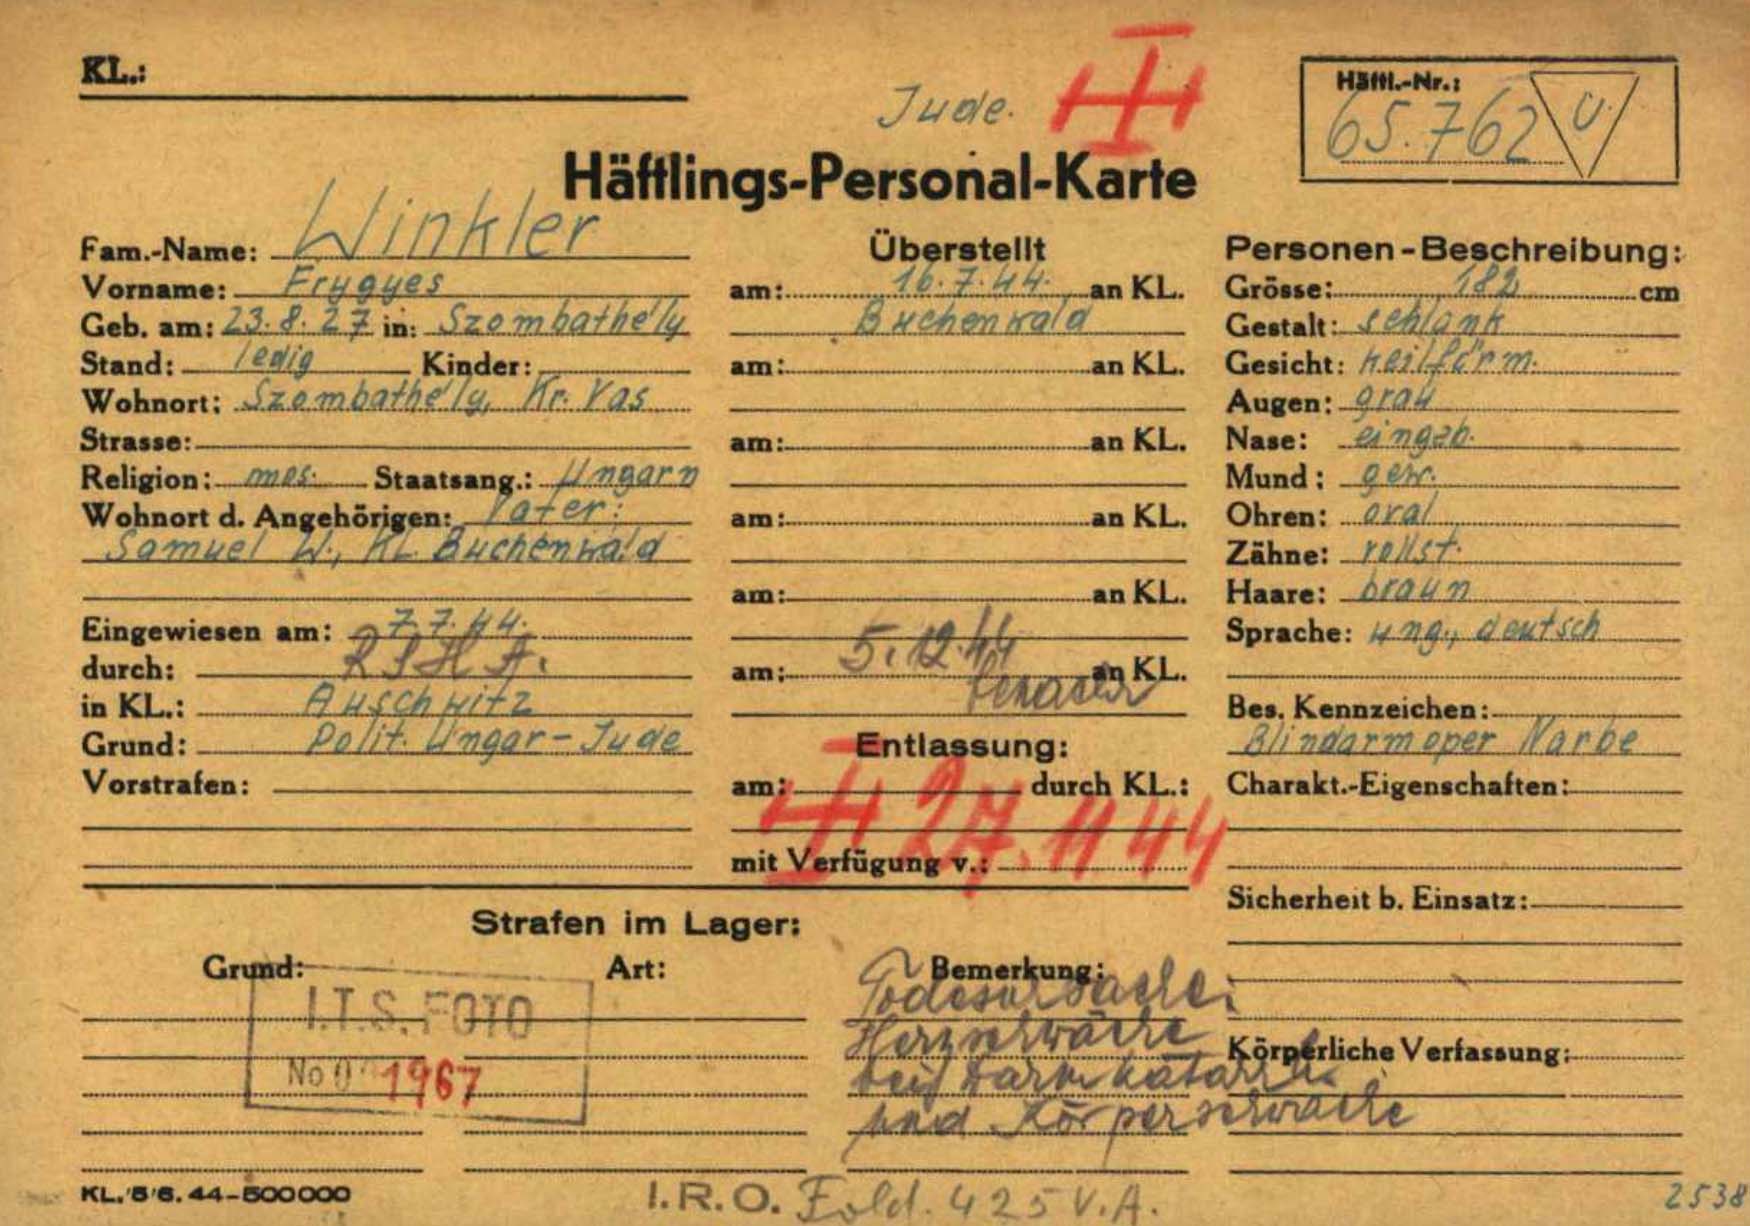 KL.:
Jude.
Häftl.-Nr.:
65.762 U.
Häftlings-Personal-Karte
Fam.-Name: Winkler
Vorname: Frygyes
Geb. am: 23.8.27 in: Szombathely
Stand: ledig Kinder:
Wohnort: Szombathely, Kr. Vas
Strasse:
Religion: mos. Staatsang.: Ungarn
Wohnort d. Angehörigen: Vater:
Samuel W., KL. Buchenwald
Eingewiesen am: 7.7.44.
durch: RSHA.
in KL.: Auschwitz
Grund: Polit. Ungar-Jude
Vorstrafen:
Überstellt
am: 16.7.44. an KL.
Buchenwald
am: an KL.
am: an KL.
am: an KL.
am: an KL.
5.12.44
am: an KL.
Entlassung:
am: durch KL.:
27.11 44
mit Verfügung v.:
Personen-Beschreibung:
Grösse: 182 cm
Gestalt: schlank
Gesicht: keilförm.
Augen: grau
Nase: eingeb.
Mund: gew.
Ohren: oval
Zähne: vollst.
Haare: braun
Sprache: ung., deutsch
Bes. Kennzeichen:
Blindarmoper Narbe
Charakt.-Eigenschaften:
Sicherheit b. Einsatz:
Körperliche Verfassung:
Strafen im Lager:
Grund: Art: Bemerkung:
Todesursache:
Herzschwäche
bei Darmkatarrh
und Körperschwäche
I.T.S. FOTO
No 1967
KL./5/6. 44-500000
I.R.O. Fold. 425 V.A.
2538